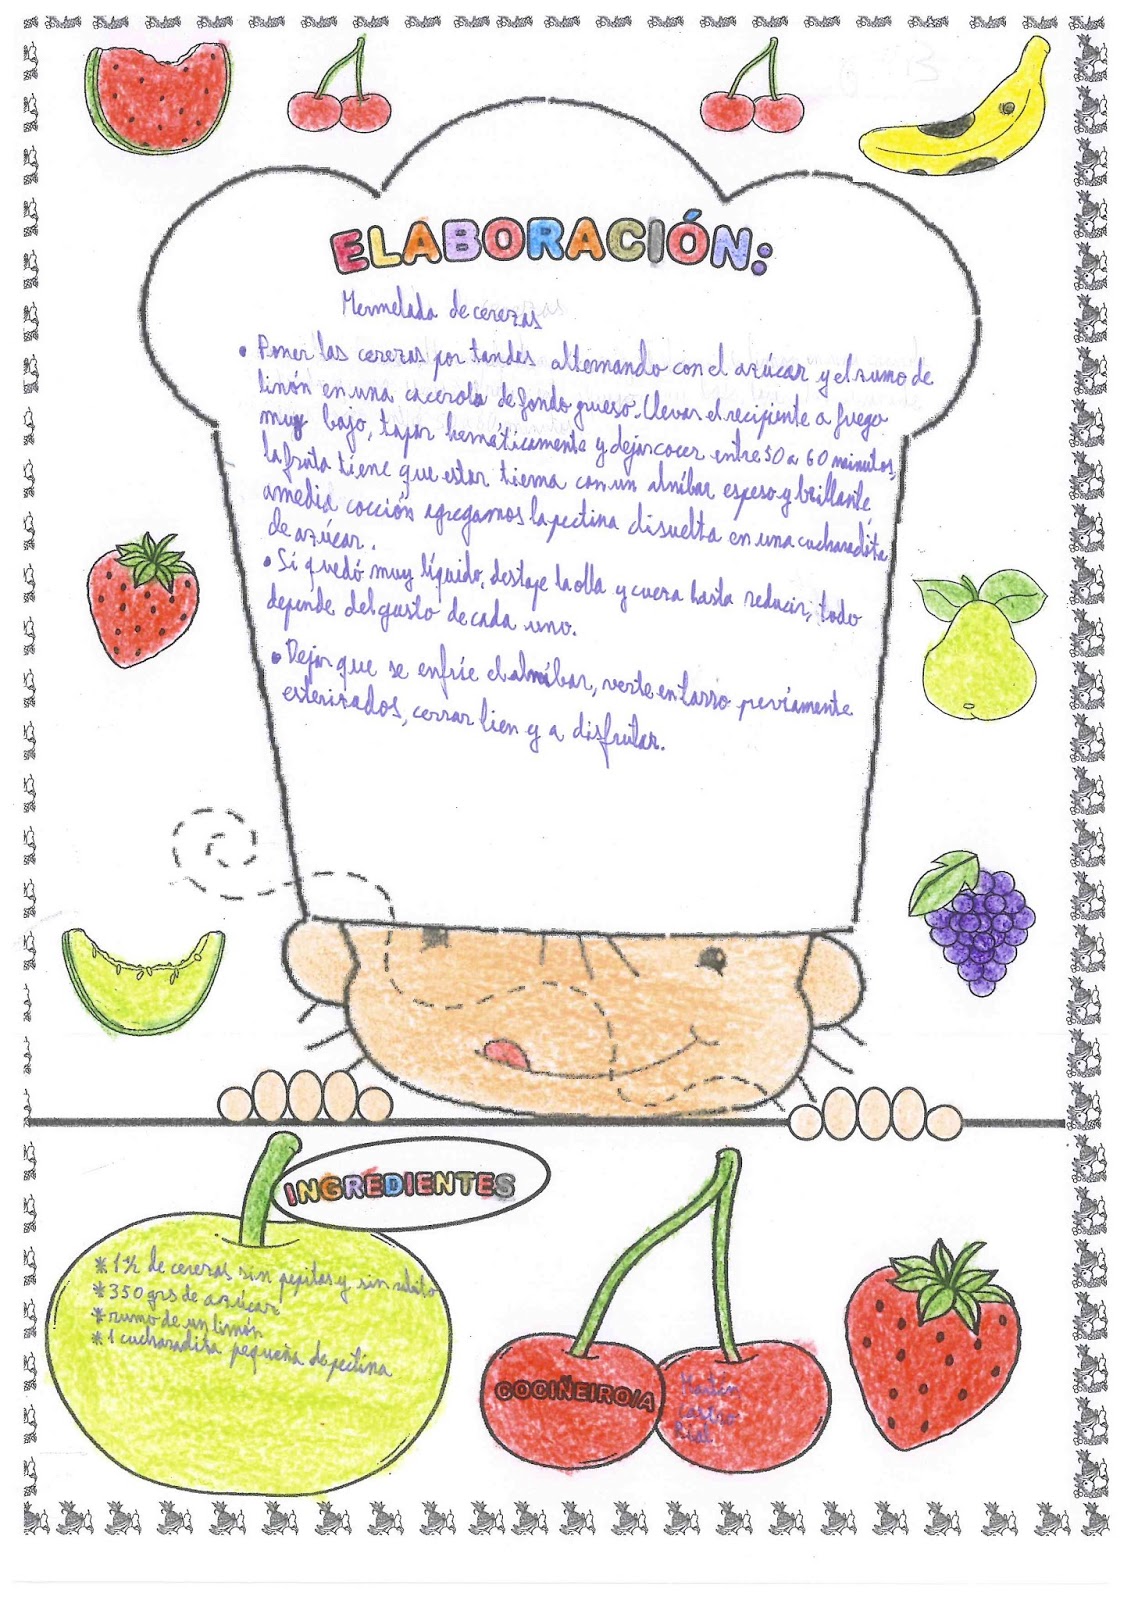 ELABORACIÓN:
Mermelada de cerezas
• Poner las cerezas por tandas alternando con el azúcar y el zumo de
limón en una cacerola de fondo grueso. Llevar el recipiente a fuego
muy bajo, tapar herméticamente y dejar cocer entre 50 a 60 minutos,
la fruta tiene que estar tierna con un almíbar espeso y brillante,
a media cocción agregamos la pectina disuelta en una cucharadita
de azúcar.
• Si quedó muy líquido, destape la olla y cueza hasta reducir, todo
depende del gusto de cada uno.
• Dejar que se enfríe el almíbar, verte en tarro previamente
esterizados, cerrar bien y a disfrutar.
INGREDIENTES
* 1 ½ de cerezas sin pepitas y sin rabito
* 350 grs de azúcar
* zumo de un limón
* 1 cucharadita pequeña de pectina
COCIÑEIRO/A
Martín
Castro
Rial